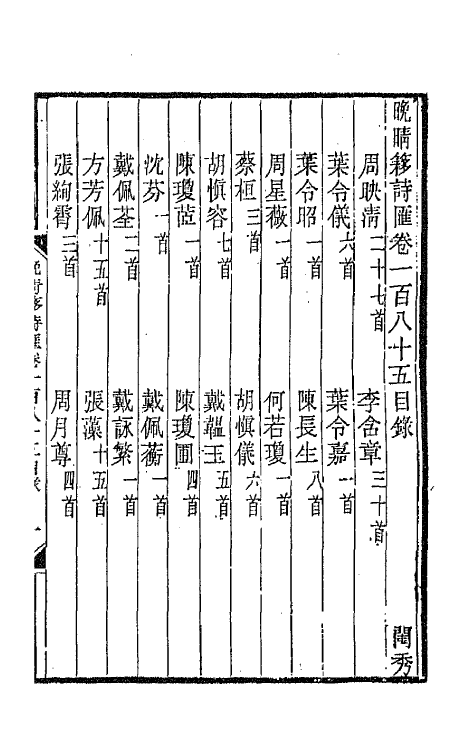 晚晴簃詩匯卷一百八十五目錄 閨秀
周映淸二十七首 李含章三十首
葉令儀六首 葉令嘉一首
葉令昭一首 陳長生八首
周星薇一首 何若瓊一首
蔡桓三首 胡愼儀六首
胡愼容七首 戴韞玉五首
陳瓊茝一首 陳瓊圃四首
沈芬一首 戴佩蘅一首
戴佩荃二首 戴詠繁一首
方芳佩十五首 張藻十五首
張絢霄三首 周月尊四首
晚晴簃詩匯卷一百八十五目錄 一